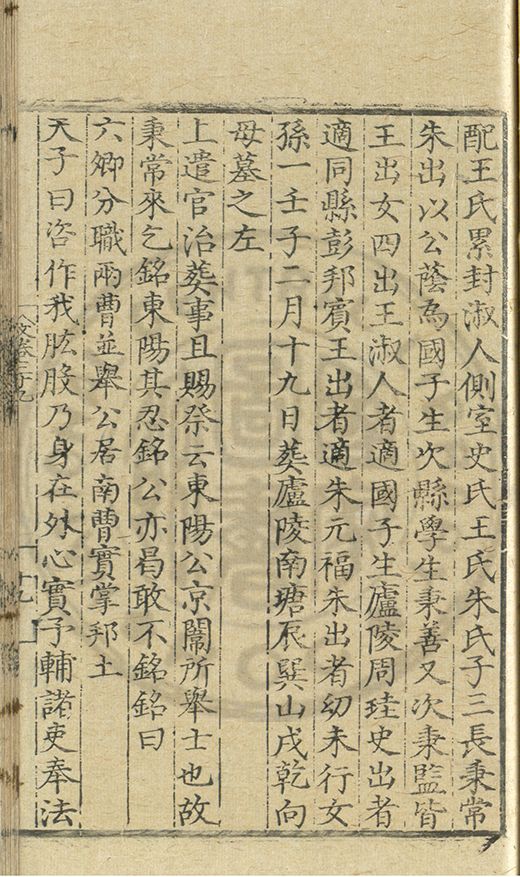 配王氏累封淑人側室史氏王氏朱氏子三長秉常
朱出以公蔭為國子生次縣學生秉善又次秉監皆
王出女四出王淑人者適國子生廬陵周珪史出者
適同縣彭邦賓王出者適朱元福朱出者幼未行女
孫一壬子二月十九日葬廬陵南塘辰巽山戌乾向
母墓之左
上遣官治葬事且賜祭云東陽公京闈所舉士也故
秉常來乞銘東陽其忍銘公亦曷敢不銘銘曰
六卿分職兩曹並舉公居南曹實掌邦土
天子曰咨作我肱股乃身在外心實予輔諸吏奉法